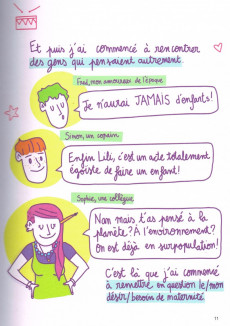 Et puis j'ai commencé à rencontrer
des gens qui pensaient autrement.
Fred, mon amoureux de l'époque
Je n'aurai JAMAIS d'enfants!
Simon, un copain
Enfin Lili, c'est un acte totalement
égoïste de faire un enfant!
Sophie, une collègue
Nan mais t'as pensé à la
planète? À l'environnement?
On est déjà en surpopulation!
C'est là que j'ai commencé
à remettre en question le/mon
désir/besoin de maternité.
11